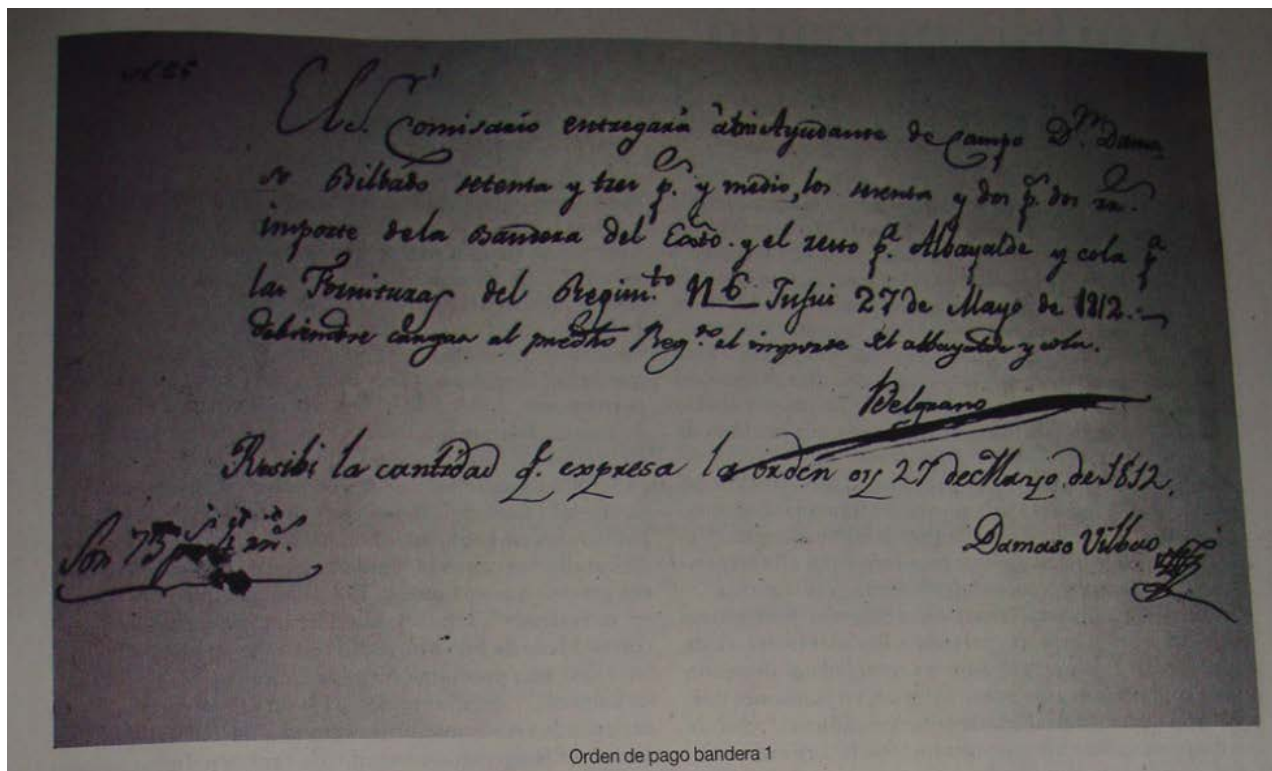 El Sr. Comisario entregará a mi Ayudante de Campo Dn. Dama
so Bilbado setenta y tres p. y medio, los setenta y dos p. dos rr.
importe dela Bandera del Exto. y el resto pa. Albayalde y cola pa.
las Fornituras del Regimto. N 6 Jujui 27 de Mayo de 1812.
debiendose cargar al predho Regto. el importe del albayalde y cola.
Belgrano
Resibi la cantidad q. expresa la orden oy 27 de Mayo de 1812.
Damaso Vilbao
Son 73 ps. 4 rr.
Orden de pago bandera 1